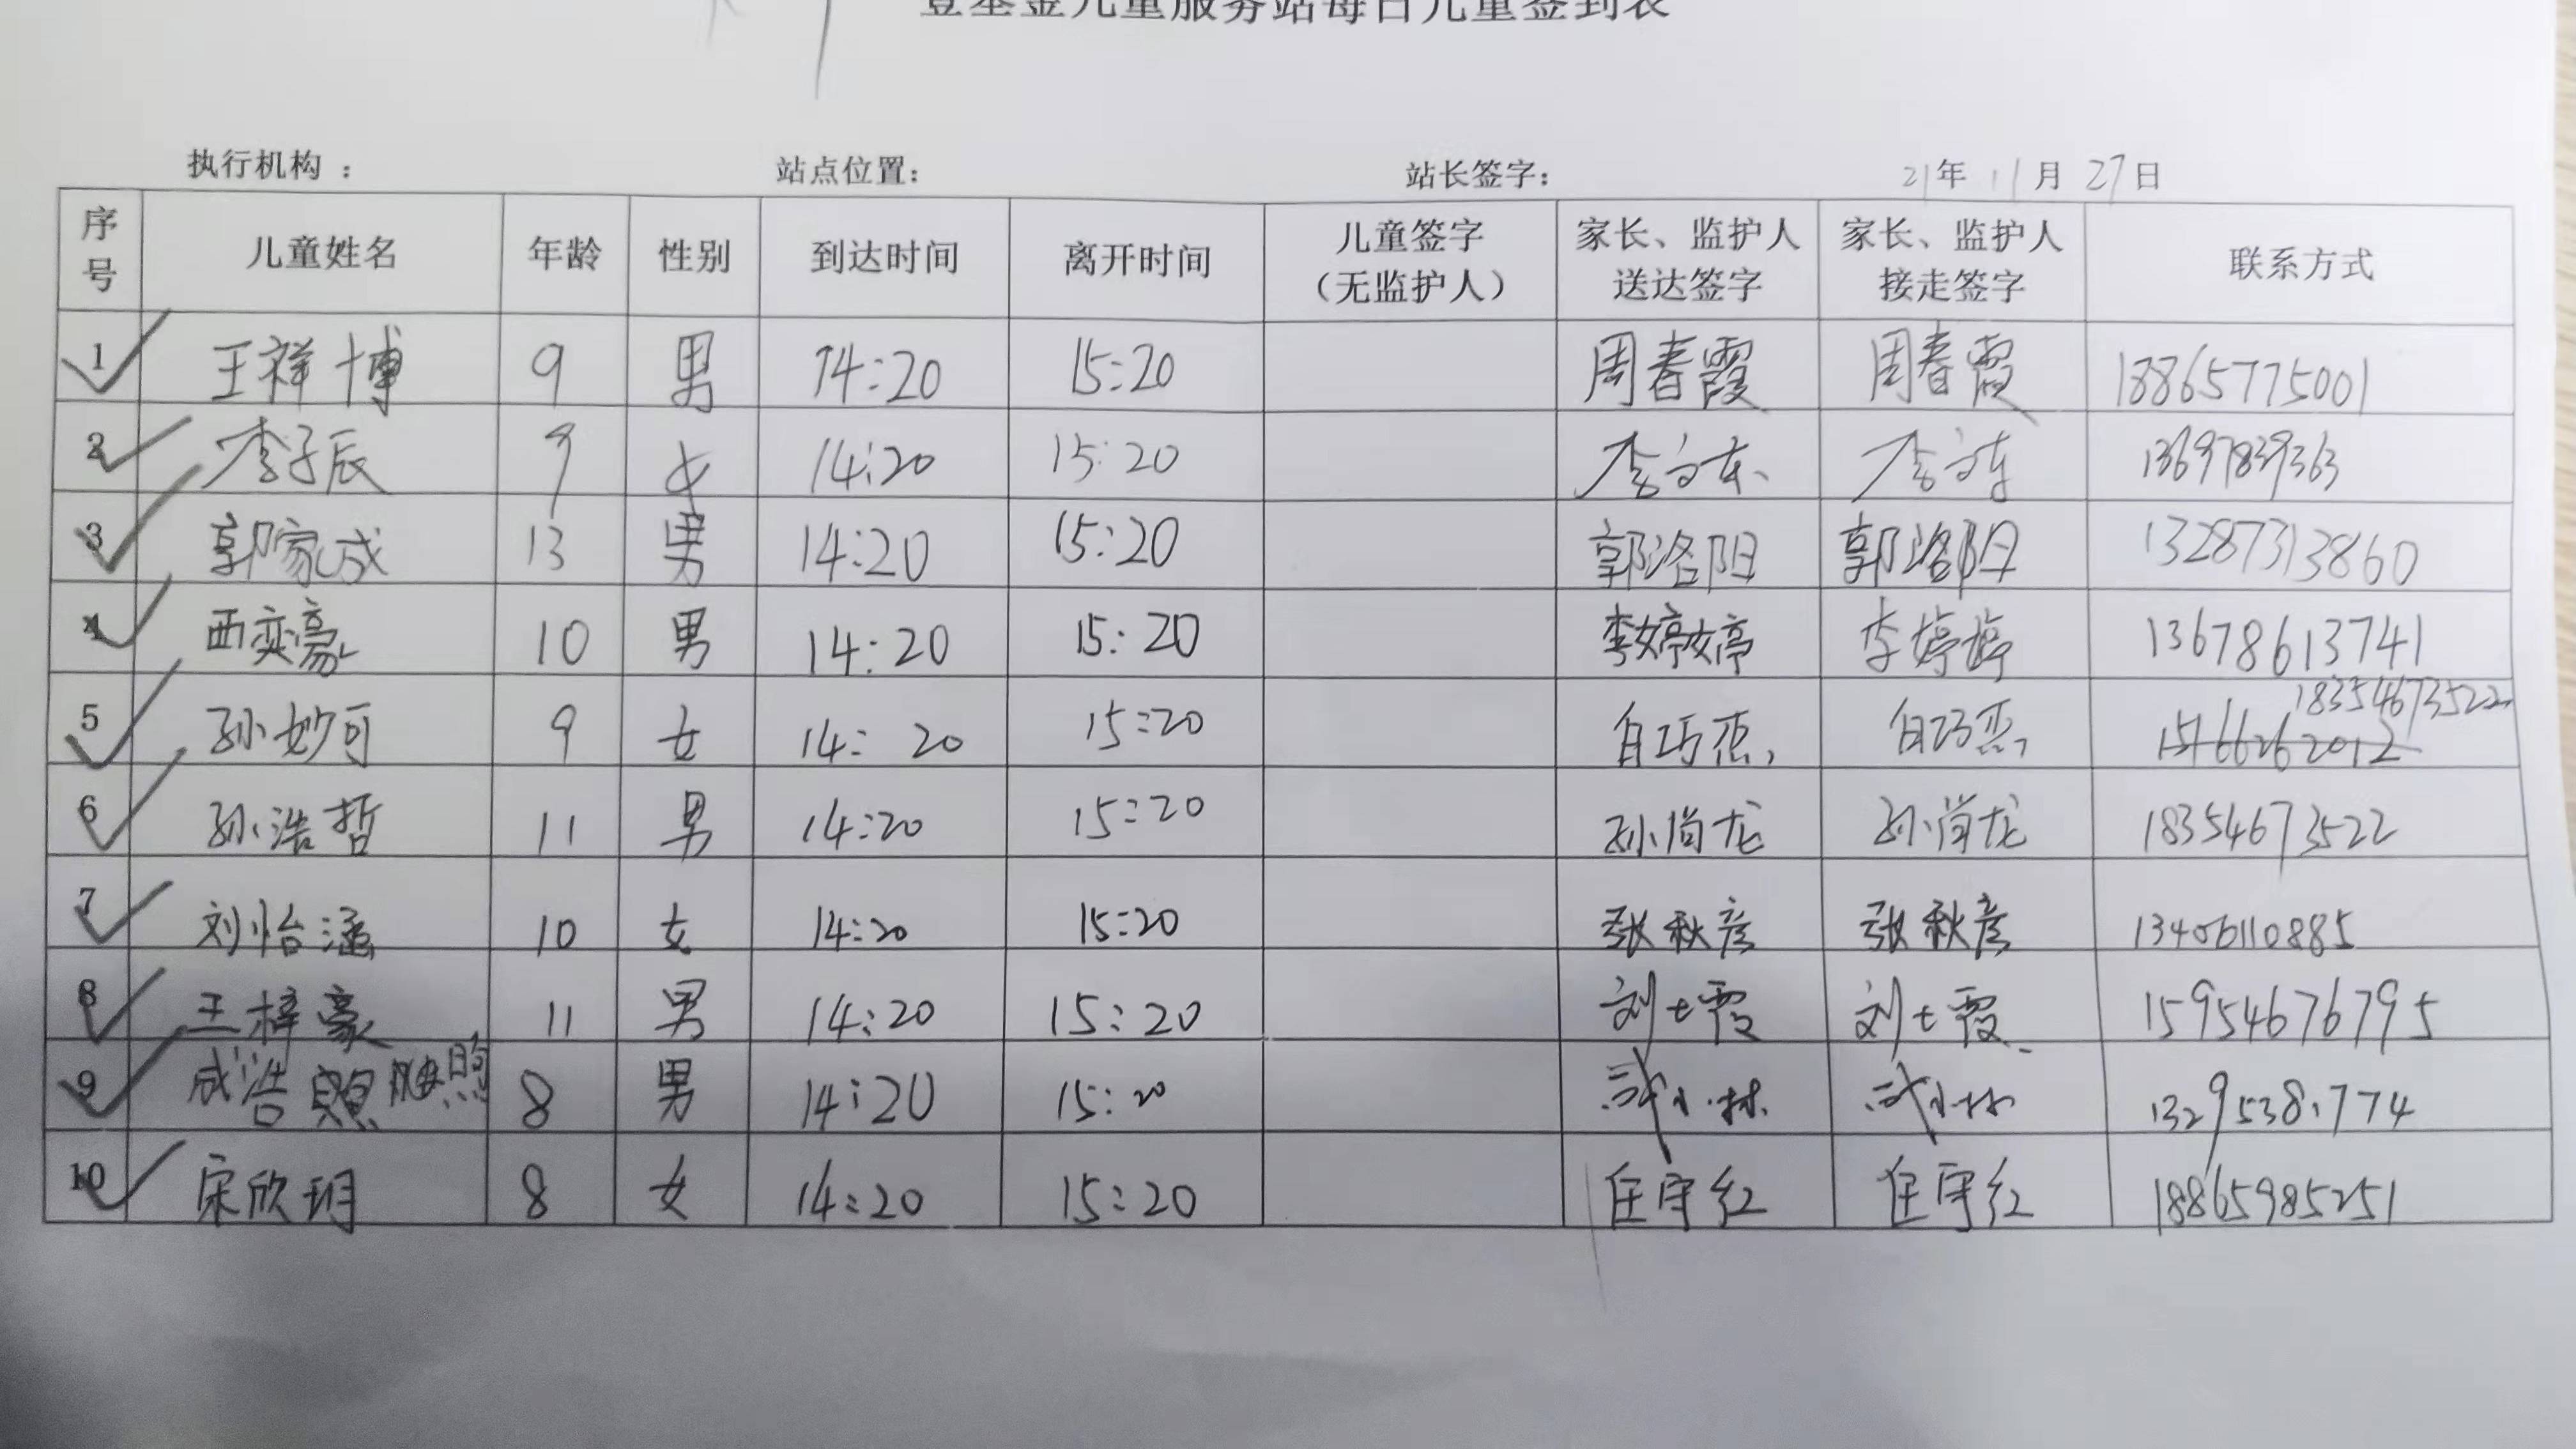 壹基金儿童服务站每日儿童签到表
执行机构 : 站点位置: 站长签字: 21年 11月 27日
序号 儿童姓名 年龄 性别 到达时间 离开时间 儿童签字（无监护人） 家长、监护人送达签字 家长、监护人接走签字 联系方式
1 王祥博 9 男 14:20 15:20 周春霞 周春霞 18865775001
2 李子辰 9 女 14:20 15:20 13697839363
3 郭家成 13 男 14:20 15:20 郭洛阳 郭洛阳 13287313860
4 西奕豪 10 男 14:20 15:20 李婷婷 李婷婷 13678613741
5 孙妙可 9 女 14: 20 15:20 18354673522
6 孙浩哲 11 男 14:20 15:20 孙尚龙 孙尚龙 18354673522
7 刘怡涵 10 女 14:20 15:20 张秋彦 张秋彦 13406110885
8 王梓豪 11 男 14:20 15:20 刘七霞 刘七霞 15954676795
9 成浩 8 男 14:20 15:20
10 宋欣玥 8 女 14:20 15:20 任守红 任守红 18865985251